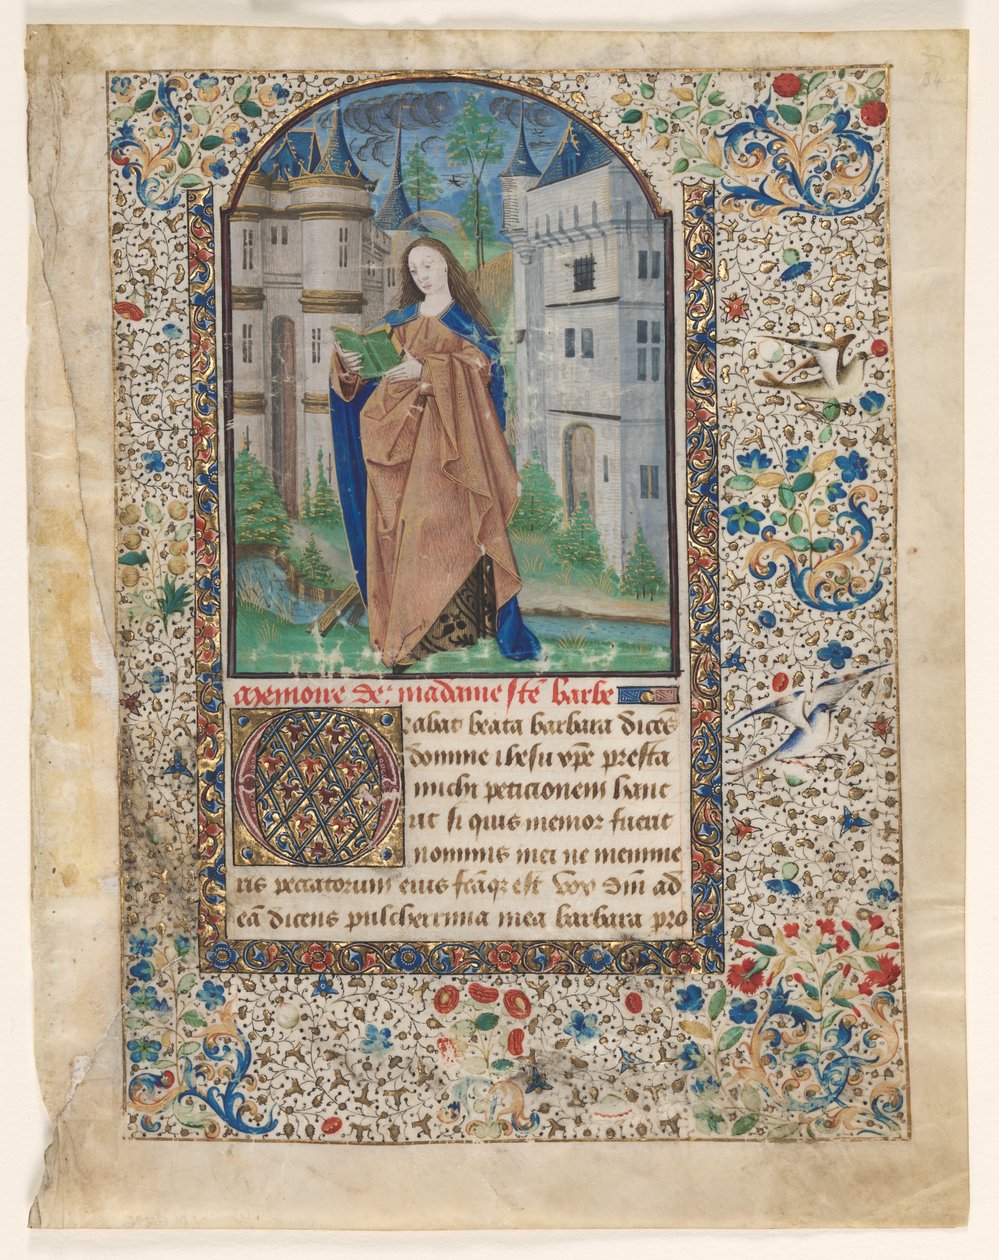 Memoire de madame ste barbe
Orabat beata barbara dicens
domine ihesu xpe presta
michi peticionem hanc
ut si quis memor fuerit
nominis mei ne memine
ris peccatorum eius fcãqz est vox dni ad
eã dicens pulcherrima mea barbara pro